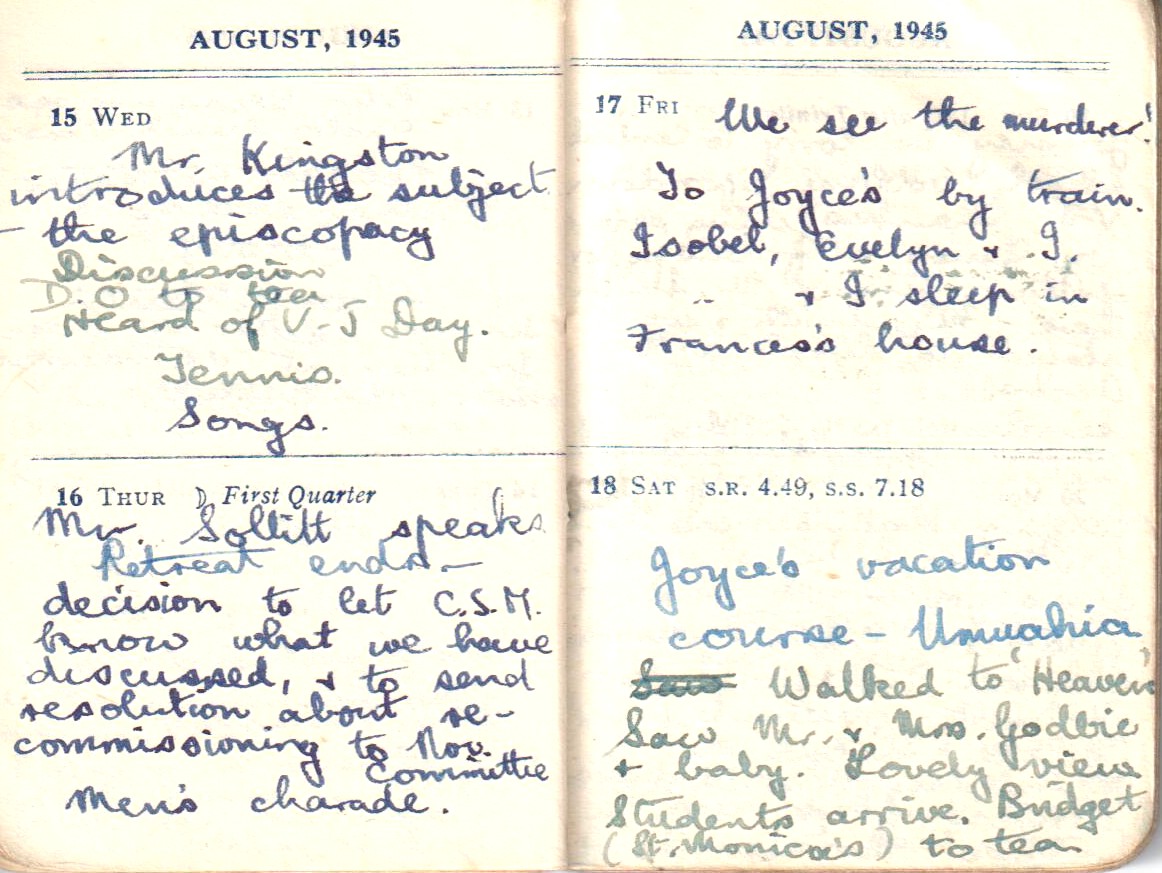 AUGUST, 1945
15 WED
Mr. Kingston
introduces the subject
- the episcopacy
Discussion
D.O to tea
Heard of V-J Day.
Tennis.
Songs.
16 THUR ☽ First Quarter
Mr. Sollitt speaks
Retreat ends -
decision to let C.S.M.
know what we have
discussed, & to send
resolution about re-
commissioning to Nov.
Committee
Men's charade.
AUGUST, 1945
17 FRI
We see the murderer!
To Joyce's by train.
Isobel, Evelyn & I.
" & I sleep in
Frances's house.
18 SAT S.R. 4.49, S.S. 7.18
Joyce's vacation
course - Umuahia
Saw Walked to 'Heaven'
Saw Mr. & Mrs. Godbie
+ baby. Lovely view
Students arrive. Bridget
(St. Monica's) to tea